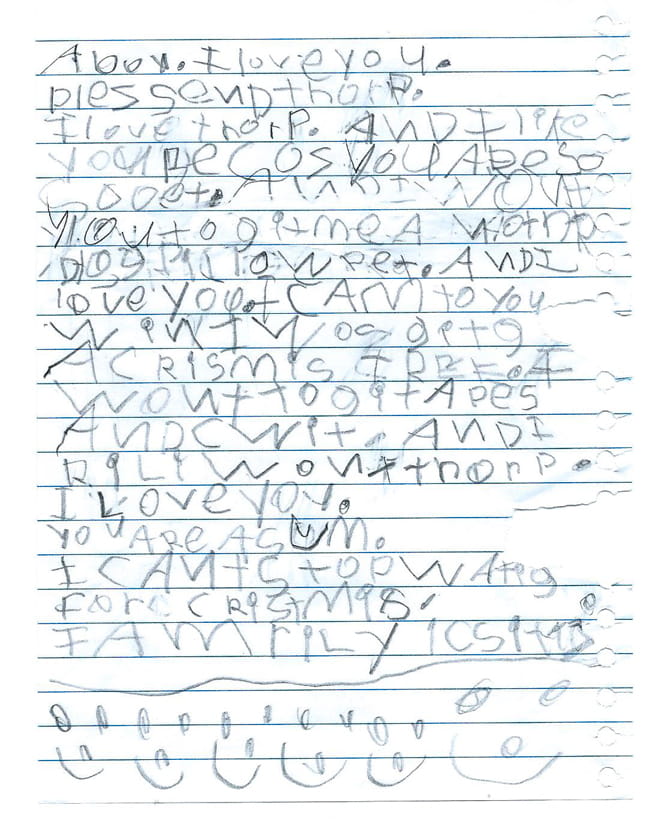 Aboy. I love you.
ples send thorp.
I love thorp. AND I like
you BECOS you ARe so
Sooet. AND I WONT
you to git me A
AND I
love you. I CAM to you
WiN I WOS getg
A CRISmis TREE. I
WONT to git APes
AND CWit. AND I
RiLi WONt thorp.
I Love you.
you ARe ASUM.
I CANt StOP WAtg
FORe CRistMis
I AM RiLy icsitid